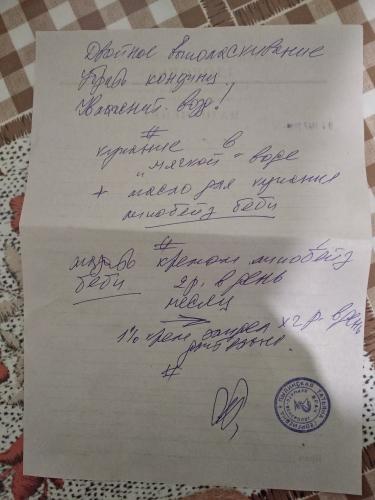 Двойное выполаскивание
Убрать кондиц
Увлажнит. возд!
#
купание в
"мягкой" воде
+ масло для купания
липобейз беби
#
мазать кремом липобейз
беби 2р. в день
месяц
1% крем х 2 р. в день
#